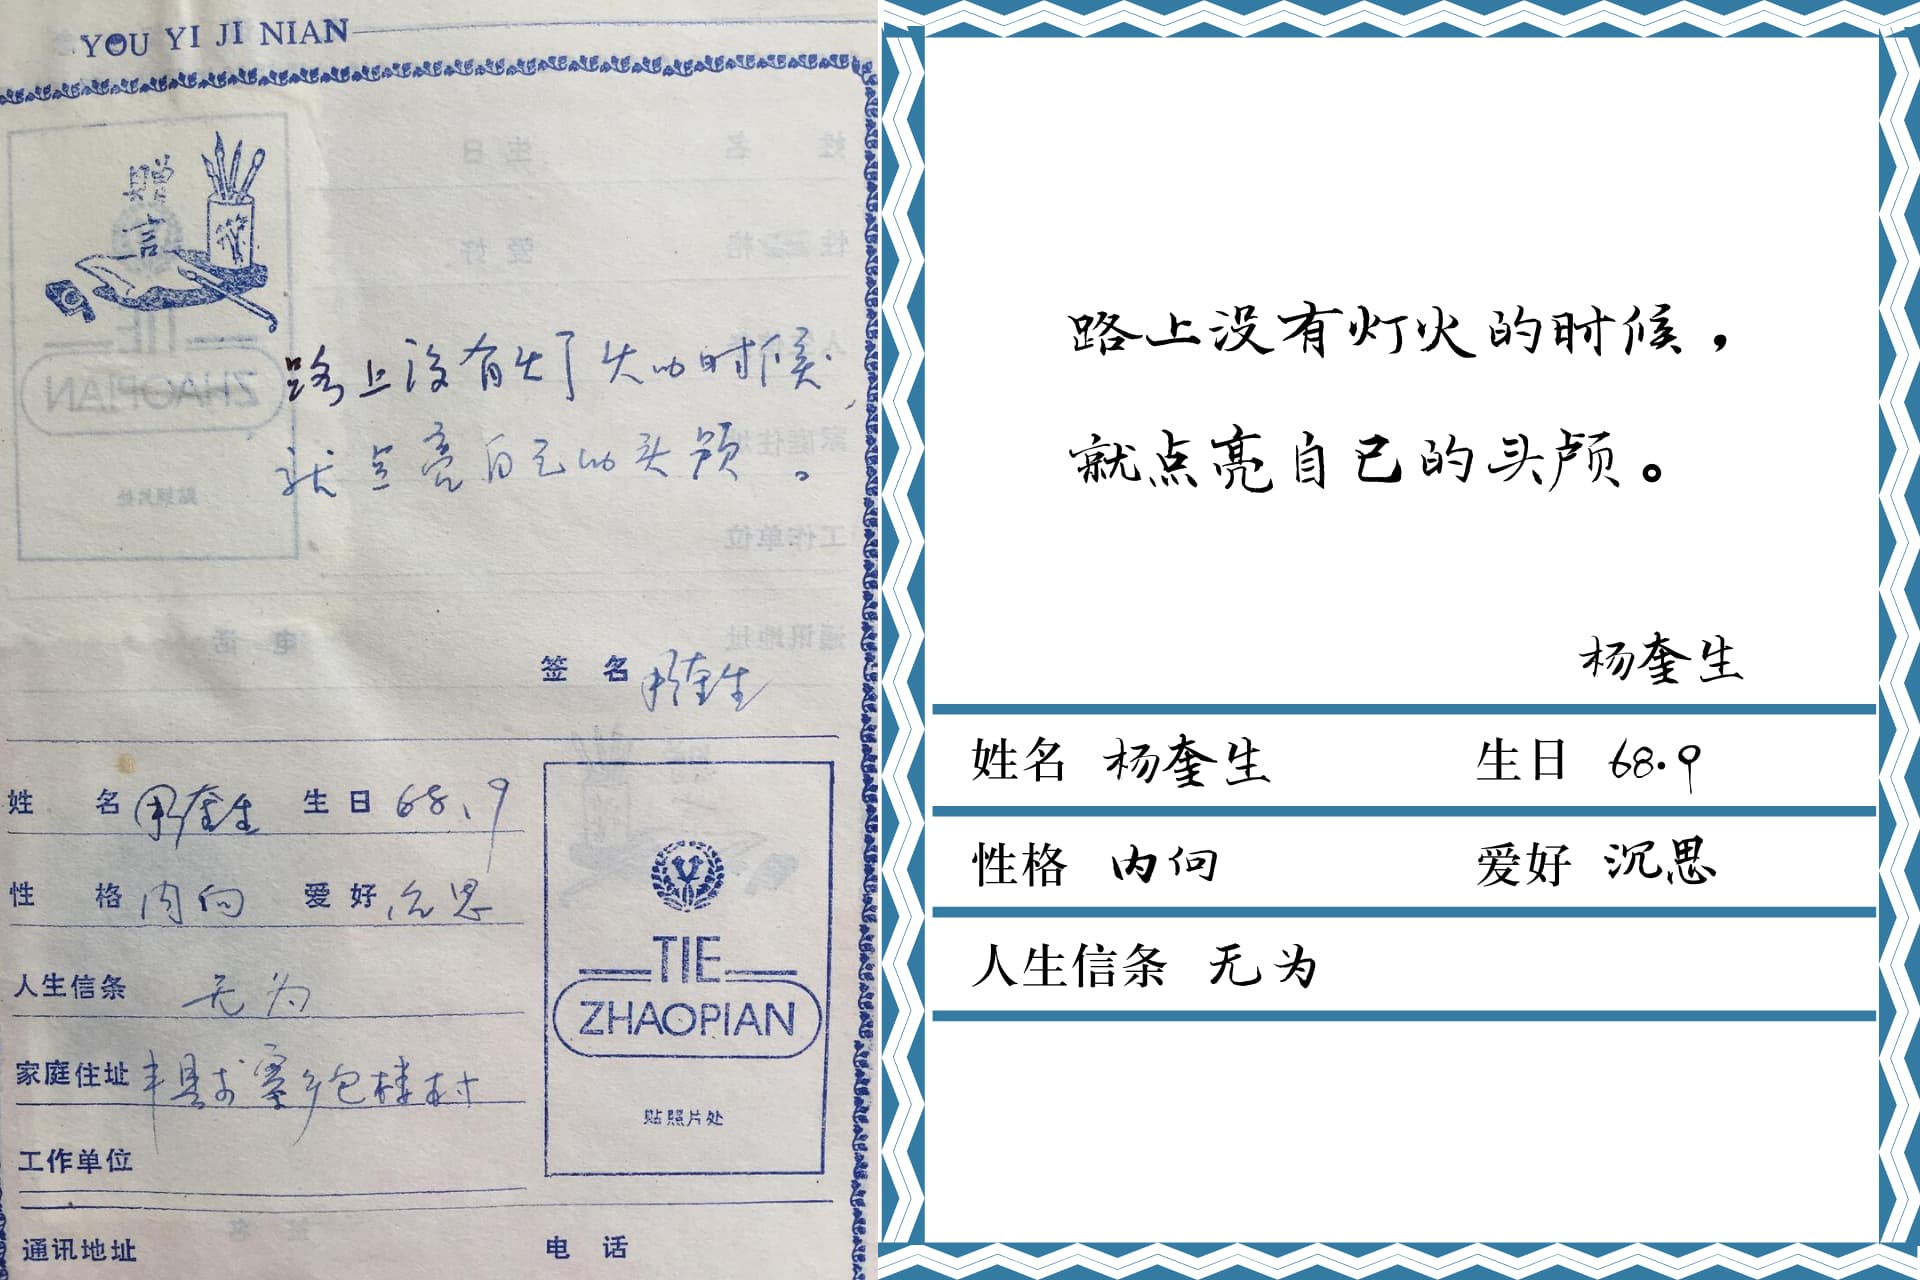 YOU YI JI NIAN
赠言
路上没有灯火的时候,
就点亮自己的头颅。
签名 杨奎生
姓名 杨奎生 生日 68.9
性格 内向 爱好 沉思
人生信条 无为
家庭住址
工作单位
通讯地址 电话
TIE
ZHAOPIAN
贴照片处
路上没有灯火的时候，
就点亮自己的头颅。
杨奎生
姓名 杨奎生 生日 68.9
性格 内向 爱好 沉思
人生信条 无为